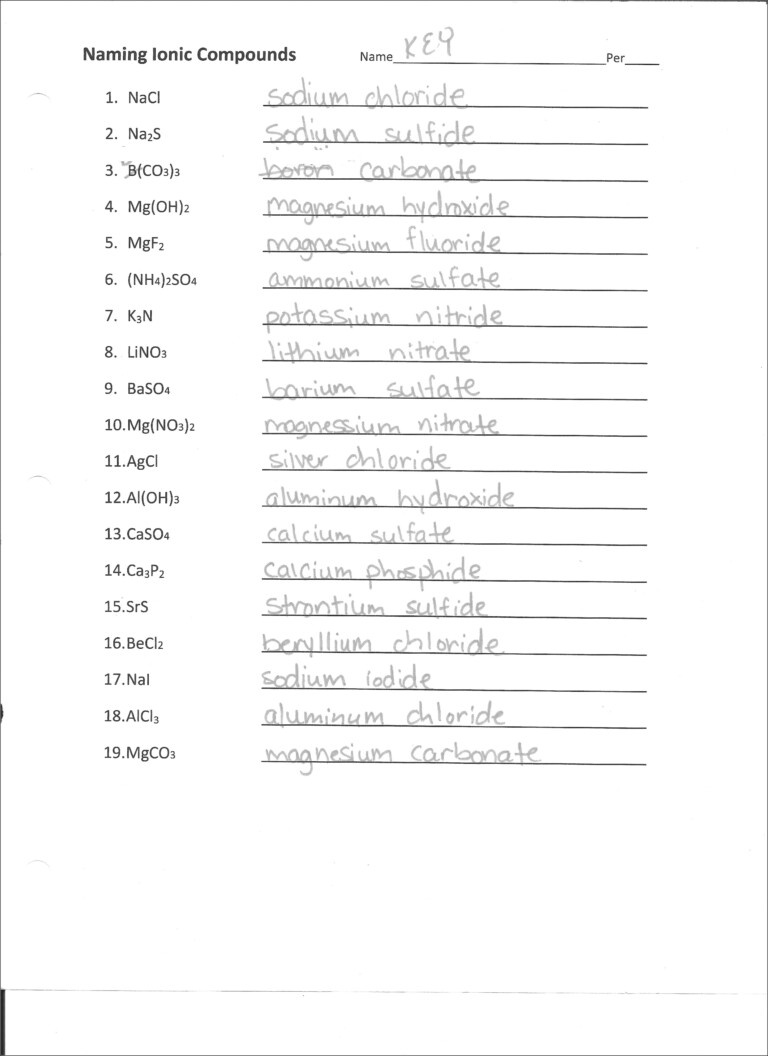 Naming Ionic Compounds Name KEY Per
1. NaCl sodium chloride
2. Na₂S sodium sulfide
3. B(CO₃)₃ boron carbonate
4. Mg(OH)₂ magnesium hydroxide
5. MgF₂ magnesium fluoride
6. (NH₄)₂SO₄ ammonium sulfate
7. K₃N potassium nitride
8. LiNO₃ lithium nitrate
9. BaSO₄ barium sulfate
10.Mg(NO₃)₂ magnessium nitrate
11.AgCl silver chloride
12.Al(OH)₃ aluminum hydroxide
13.CaSO₄ calcium sulfate
14.Ca₃P₂ calcium phosphide
15.SrS strontium sulfide
16.BeCl₂ beryllium chloride
17.NaI sodium iodide
18.AlCl₃ aluminum chloride
19.MgCO₃ magnesium carbonate